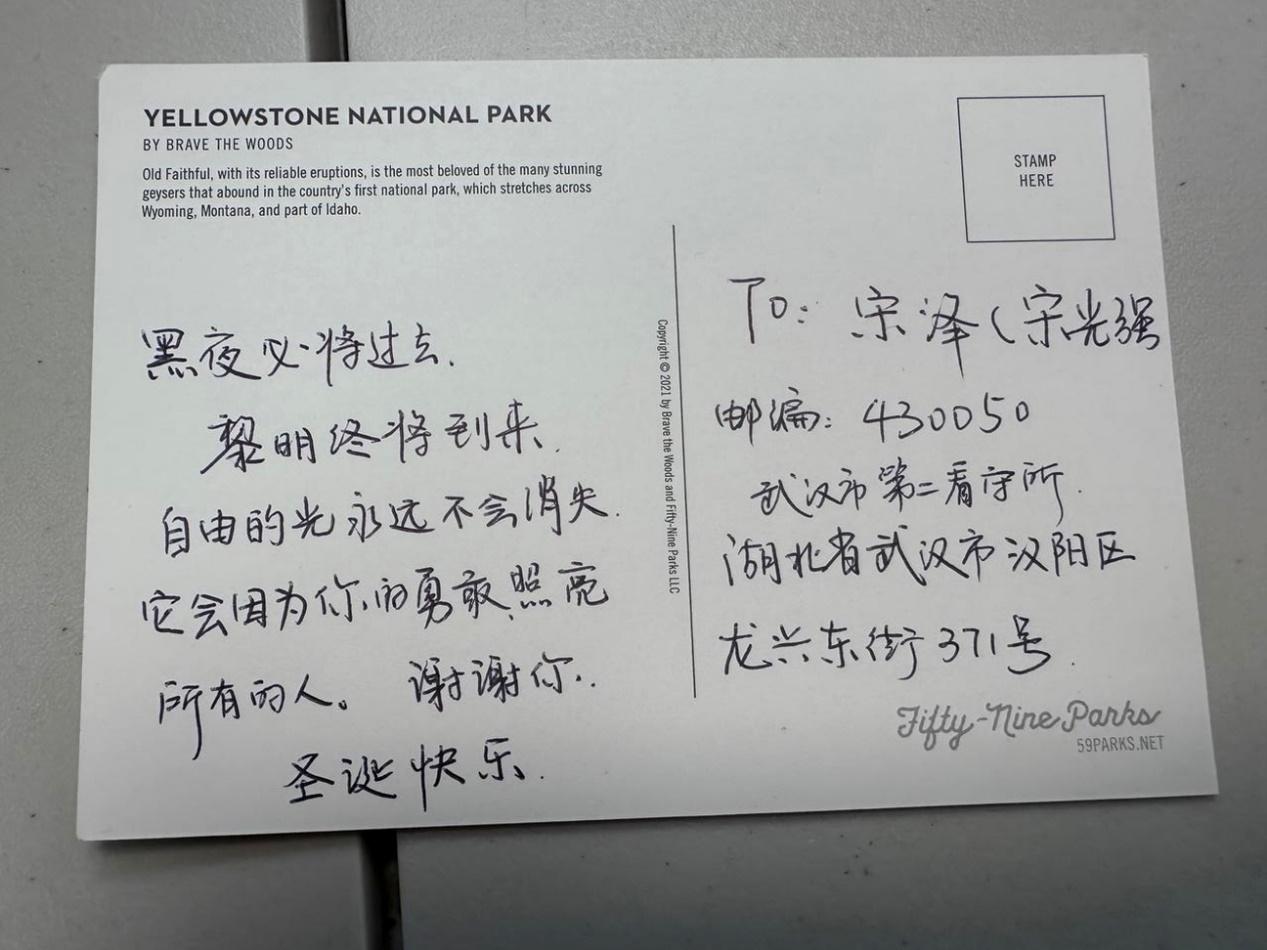 YELLOWSTONE NATIONAL PARK
BY BRAVE THE WOODS
Old Faithful, with its reliable eruptions, is the most beloved of the many stunning
geysers that abound in the country's first national park, which stretches across
Wyoming, Montana, and part of Idaho.
STAMP
HERE
黑夜必将过去.
黎明终将到来.
自由的光永远不会消失.
它会因为你的勇敢照亮
所有的人。 谢谢你.
圣诞快乐.
Copyright © 2021 by Brave the Woods and Fifty-Nine Parks LLC
To: 宋泽(宋光强
邮编: 430050
武汉市第二看守所.
湖北省武汉市汉阳区
龙兴东街371号.
Fifty-Nine Parks
59PARKS.NET